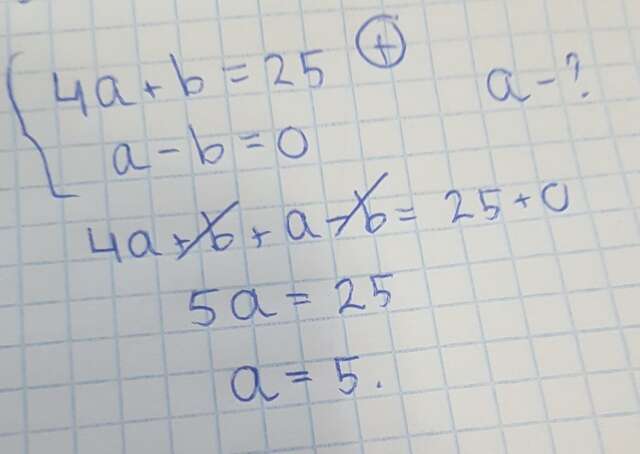 4a + b = 25 ⊕
a - b = 0
a - ?
4a + b + a - b = 25 + 0
5a = 25
a = 5.